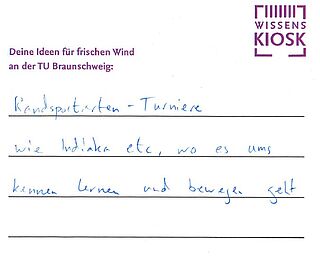 WISSENS
KIOSK
Deine Ideen für frischen Wind
an der TU Braunschweig:
Randsportarten - Turniere
wie Indiaka etc, wo es ums
kennen lernen und bewegen geht